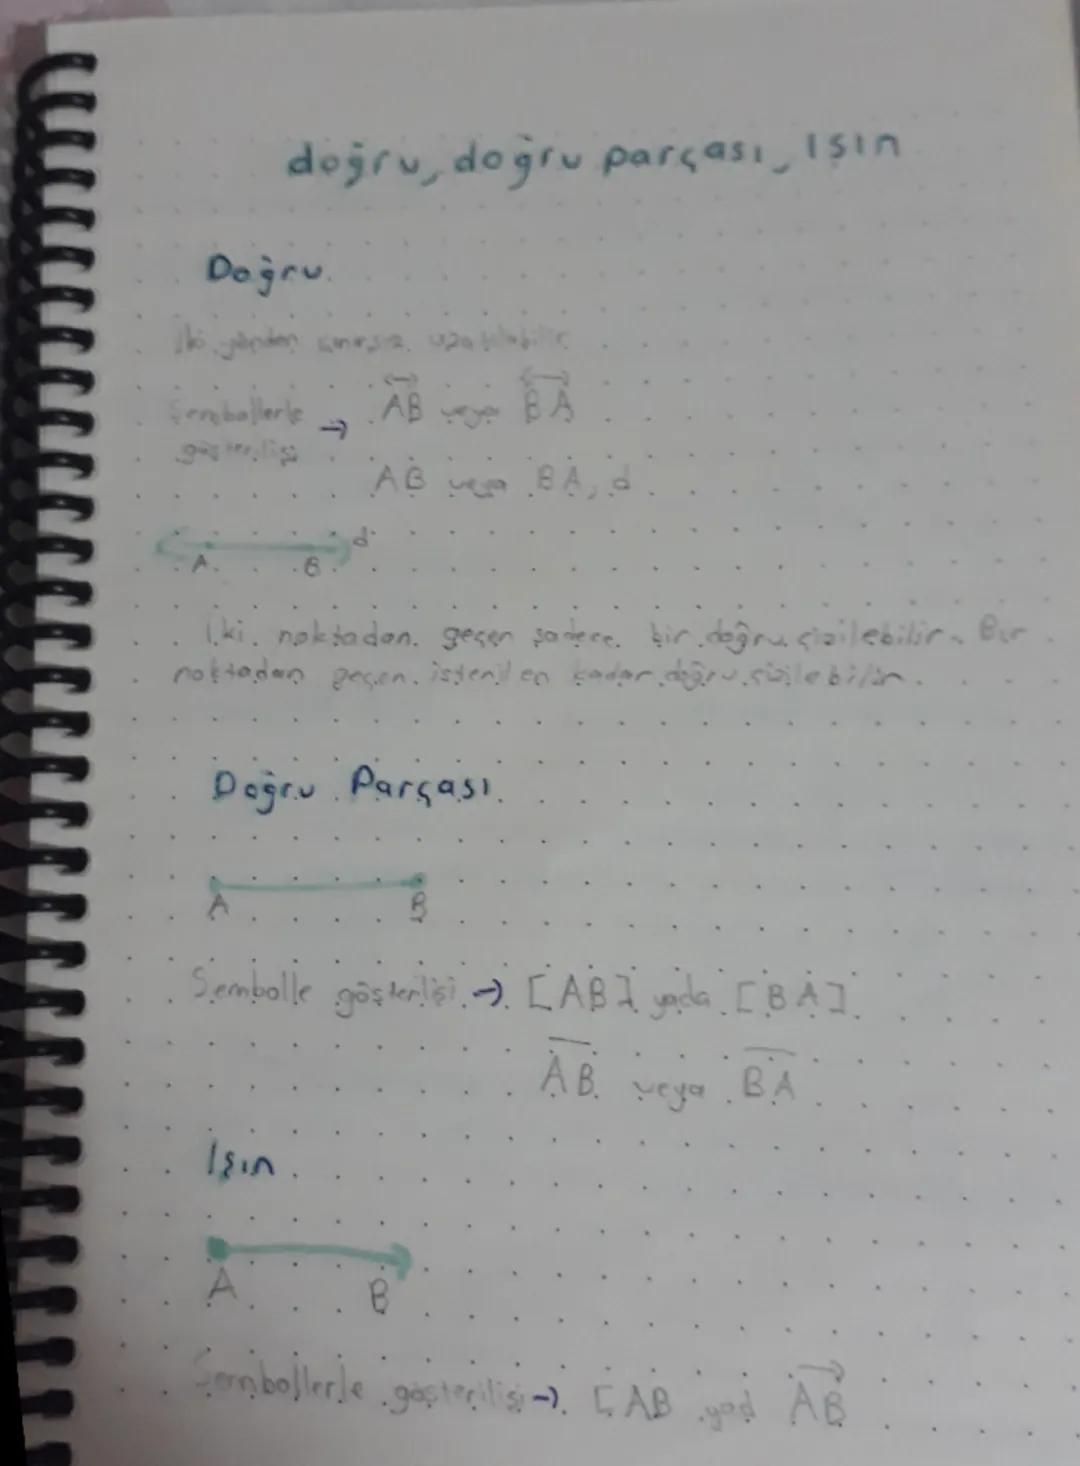 doğru, doğru parçası, ışın
Doğru
İki yönden sınırsız uzatılabilir.
Sembollerle
gösterilişi → AB veya BA
AB veya BA, d
d
A B
İki noktadan geçen sadece bir doğru çizilebilir. Bir
noktadan geçen istenilen kadar doğru çizilebilir.
Doğru Parçası
A B
Sembolle gösterlişi → [AB] yada [BA]
AB veya BA
Işın
A B
Sembollerle gösterilişi → [AB yad AB